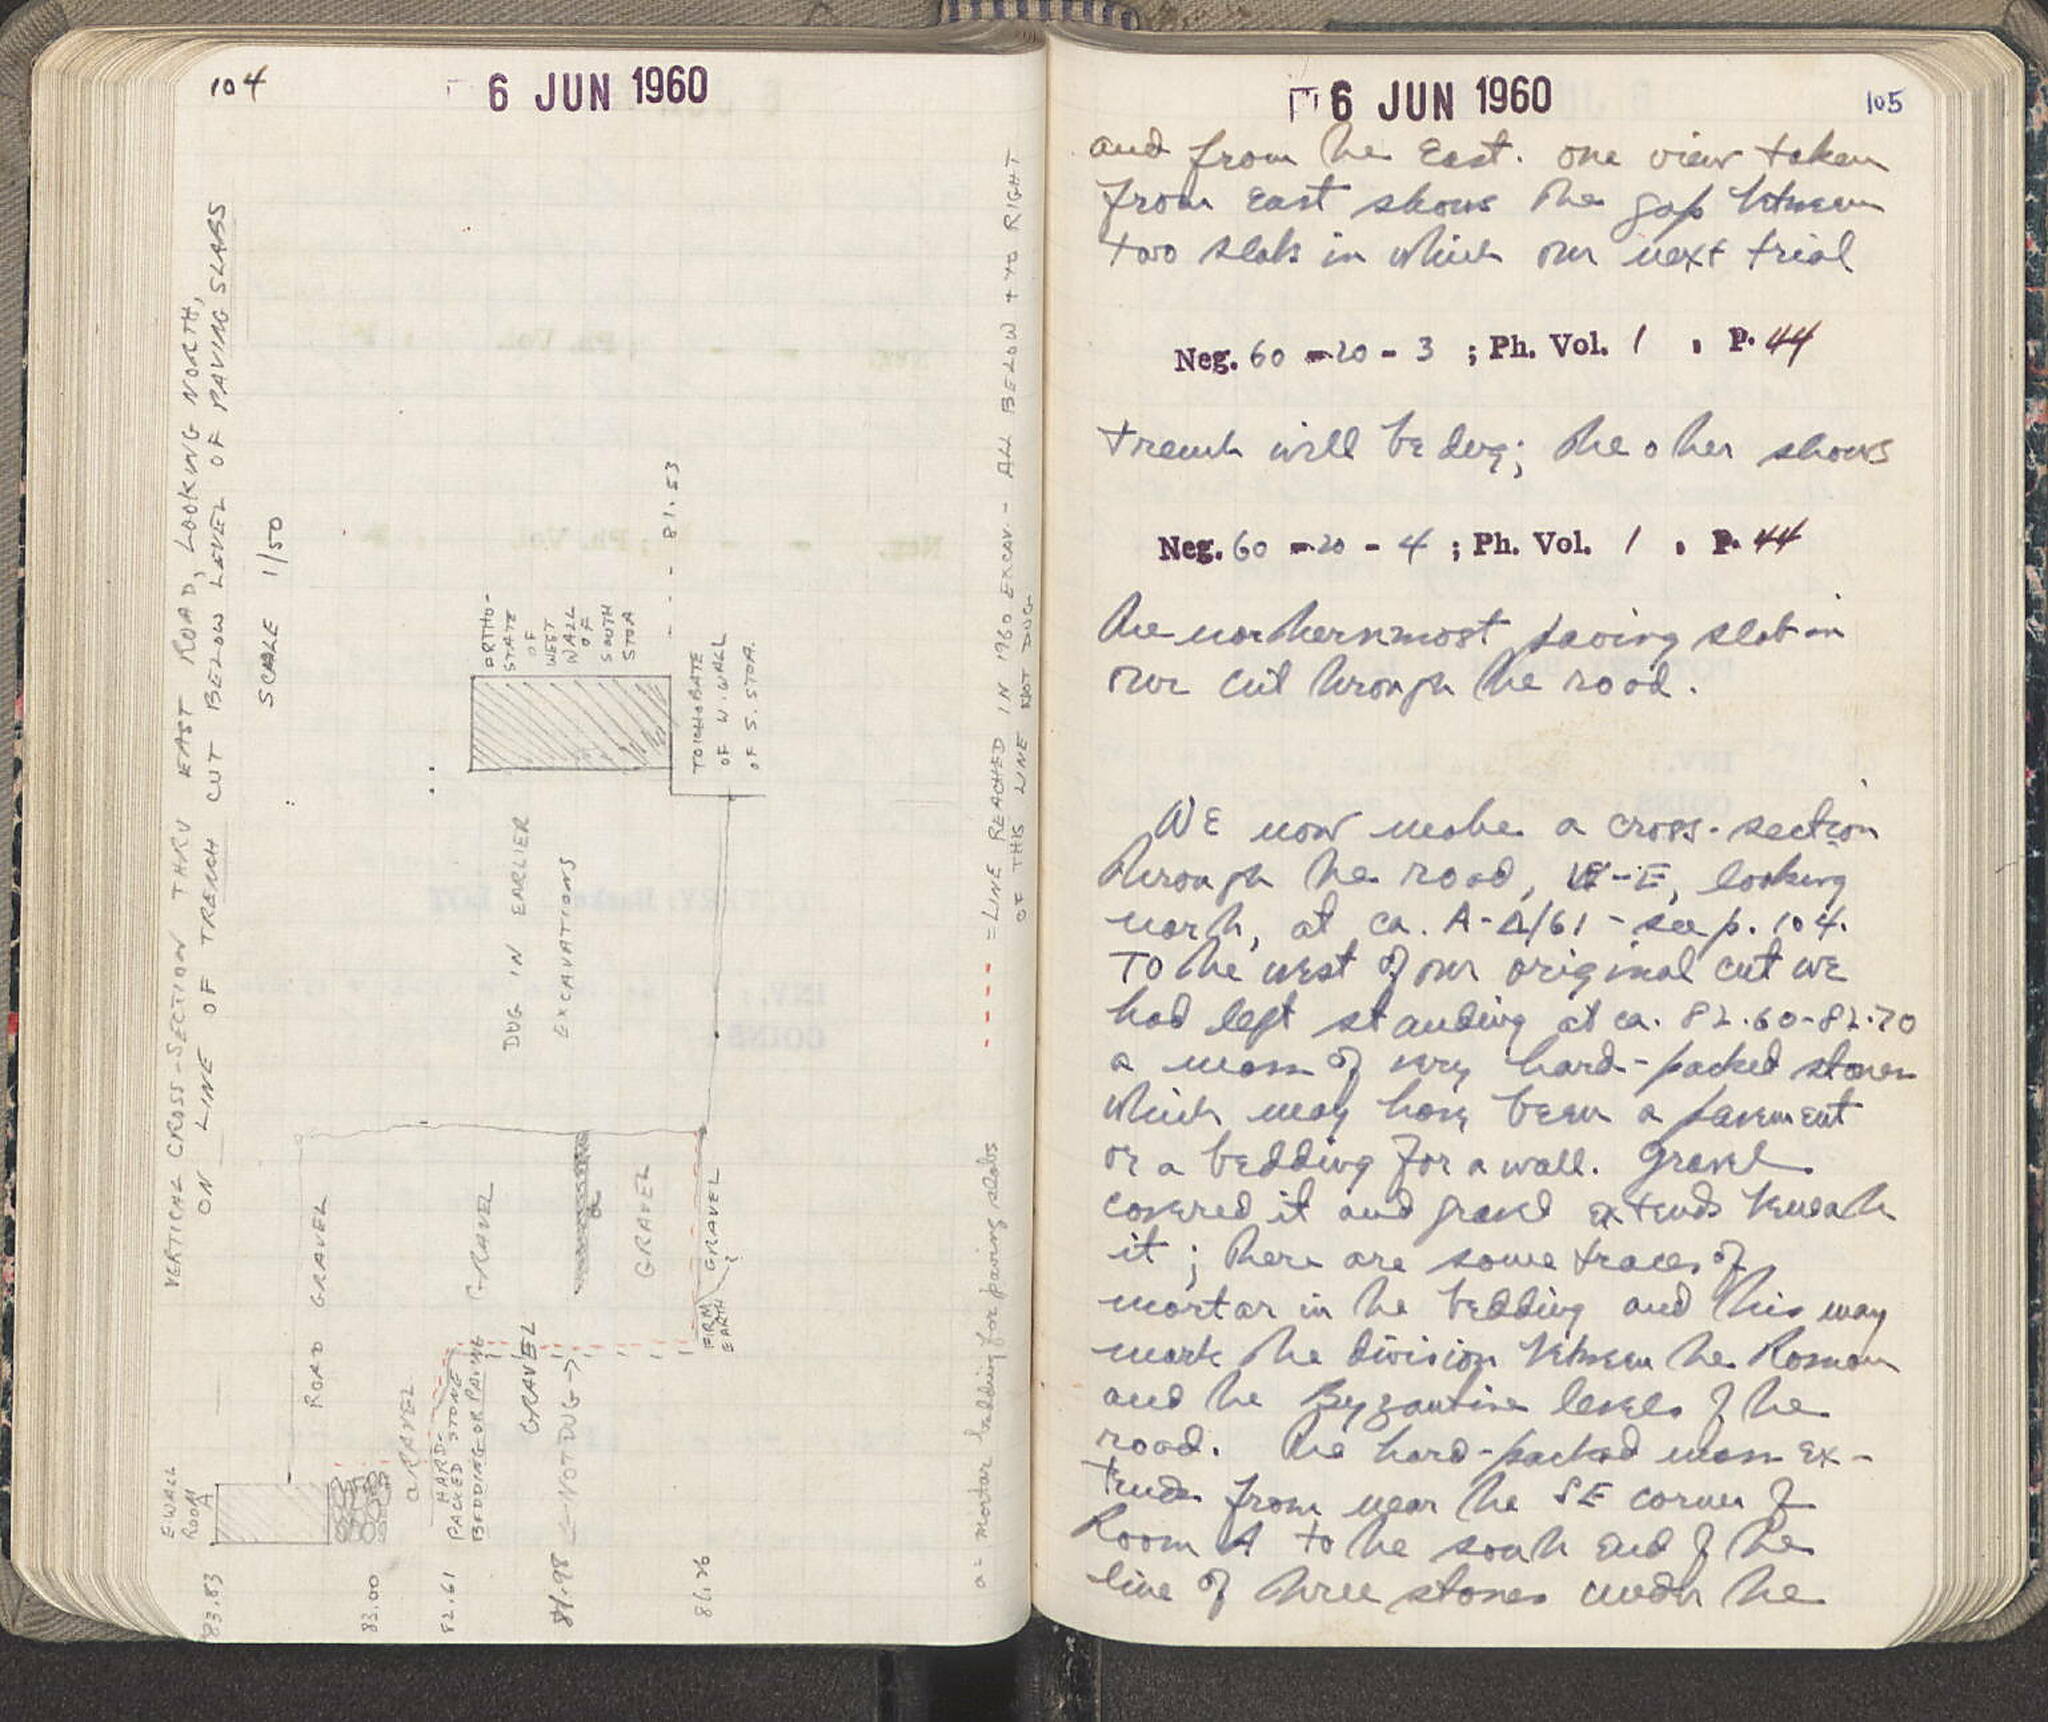 104
6 JUN 1960
VERTICAL CROSS-SECTION THRU EAST ROAD, LOOKING NORTH,
ON LINE OF TRENCH CUT BELOW LEVEL OF PAVING SLABS
SCALE 1/50
E. WALL
ROOM A
83.83
ROAD GRAVEL
83.00
a GRAVEL
82.61
HARD-
PACKED STONE
BEDDING OR PAVING
GRAVEL
GRAVEL
81.98
← NOT DUG →
a
GRAVEL
81.26
FIRM
EARTH
GRAVEL
DUG IN EARLIER
EXCAVATIONS
ORTHO-
STATE
OF
WEST
WALL
OF
SOUTH
STOA
- - - 81.53
TOICHOBATE
OF W. WALL
OF S. STOA.
a = mortar bedding for paving slabs
- - - - - = LINE REACHED IN 1960 EXCAV. - ALL BELOW + TO RIGHT
OF THIS LINE NOT DUG
6 JUN 1960
105
and from the East. one view taken
from East shows the gap between
two slabs in which our next trial
Neg. 60 - 20 - 3 ; Ph. Vol. 1 , P. 44
trench will be dug; the other shows
Neg. 60 - 20 - 4 ; Ph. Vol. 1 , P. 44
the northernmost paving slab in
our cut through the road.
We now make a cross-section
through the road, W-E, looking
north, at ca. A-Δ/61 - see p. 104.
To the west of our original cut we
had left standing at ca. 82.60-82.70
a mass of very hard-packed stones
which may have been a pavement
or a bedding for a wall. Gravel
covered it and gravel extends beneath
it; there are some traces of
mortar in the bedding and this may
mark the division between the Roman
and the Byzantine levels of the
road. The hard-packed mass ex-
tends from near the SE corner of
Room A to the south end of the
line of three stones under the